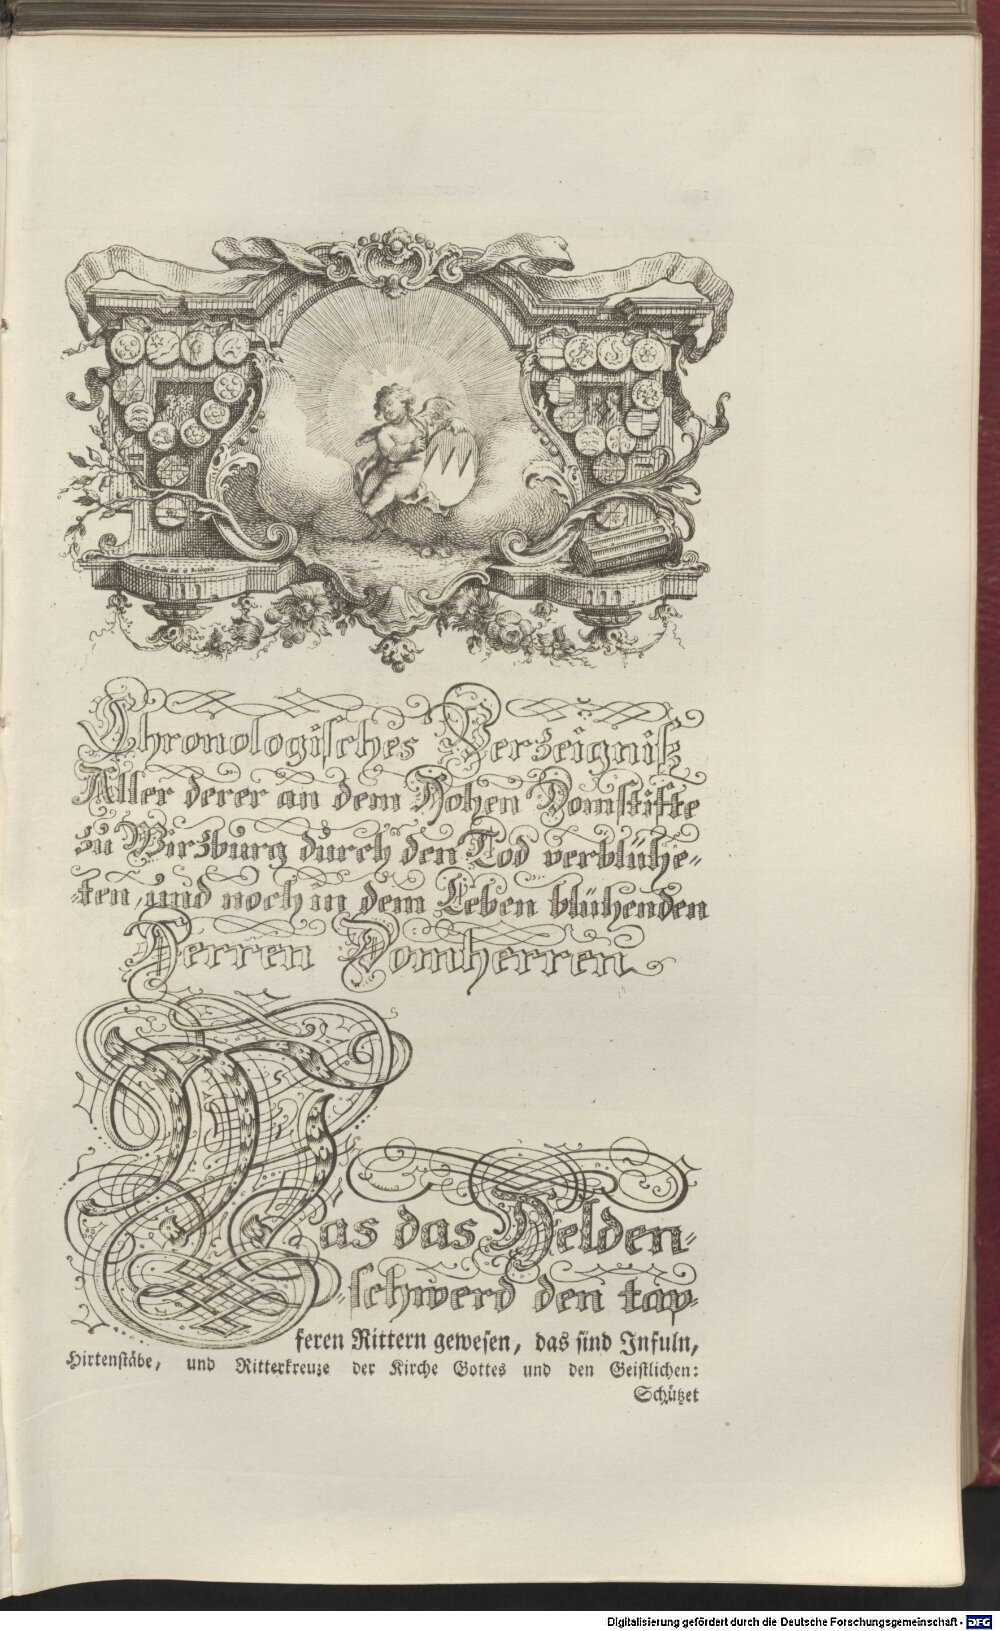 Chronologisches Verzeigniß
Aller derer an dem Hohen Domstifte
zu Wirzburg durch den Tod verblühe-
-ten, und noch in dem Leben blühenden
Herren Domherren
Was das Helden-
-schwerd den tap-
feren Rittern gewesen, das sind Infuln,
Hirtenstäbe, und Ritterkreuze der Kirche Gottes und den Geistlichen:
Schützet
Digitalisierung gefördert durch die Deutsche Forschungsgemeinschaft - DFG